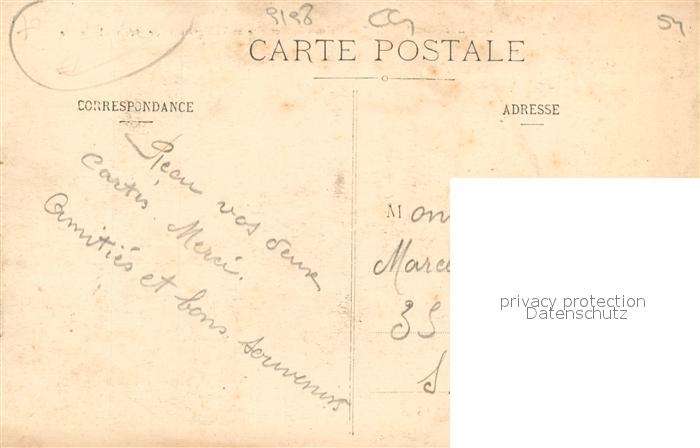 9198
54
CARTE POSTALE
CORRESPONDANCE
ADRESSE
Reçu vos deux
cartes. Merci.
Amitiés et bons souvenirs
Mon
Marce
35
S.
privacy protection
Datenschutz